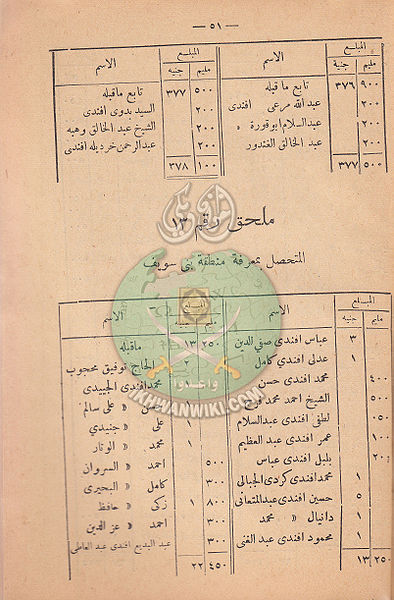 — ٥١ —
المبلغ الاسم
مليم جنيه
٩٠٠ ٣٧٦ تابع ما قبله
٢٠٠ عبد الله مرعى افندى
٢٠٠ عبد السلام ابو قورة
٢٠٠ عبد الخالق الغندور
٥٠٠ ٣٧٧
المبلغ الاسم
مليم جنيه
٥٠٠ ٣٧٧ تابع ما قبله
٢٠٠ السيد بدوى افندى
٢٠٠ الشيخ عبد الخالق وهبه
٢٠٠ عبد الرحمن خرد بله افندى
١٠٠ ٣٧٨
ملحق رقم ١٣
المتحصل بمعرفة منطقة بنى سويف
المبلغ الاسم
مليم جنيه
٣ عباس افندى صفى الدين
١ عدلى افندى كامل
٤٠٠ محمد افندى حسن
٥٠٠ الشيخ احمد محمد فرج
لطفى افندى عبد السلام
١٠٠ عمر افندى عبد العظيم
٢٠٠ بلبل افندى عباس
١ محمد افندى كردى الجبالى
٥ حسين افندى عبد المتعانى
١ دانيال « محمد
١ محمود افندى عبد الغنى
٢٥٠ ١٣
الاسم
مليم
٢٥٠ ١٣ ماقبله
الحاج توفيق محجوب
محمد افندى الجبيدى
« على سالم
١ على « جنيدى
١ محمد « الوتار
٥٠٠ احمد « السروان
٣٠٠ كامل « البحيرى
٨٠٠ ١ زكى « حافظ
٣٠٠ احمد « عز الدين
٣٠٠ عبد البديع افندى عبد العاطى
٤٥٠ ٢٢
واعدوا
IKHWANWIKI.COM